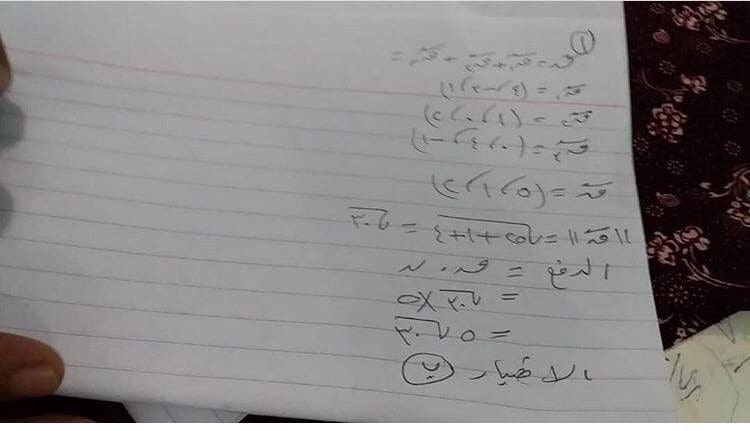 ①
ق = ق١ + ق٢ + ق٣ =
ق١ = (٤، -٢، ١)
ق٢ = (١، ٠، ٢)
ق٣ = (٠، ٣، -١)
ق = (٥، ١، ٢)
||ق|| = √٢٥+١+٤ = √٣٠
الدفع = ق · ن
= √٣٠ × ٥
= ٥ √٣٠
الاختيار (ب)